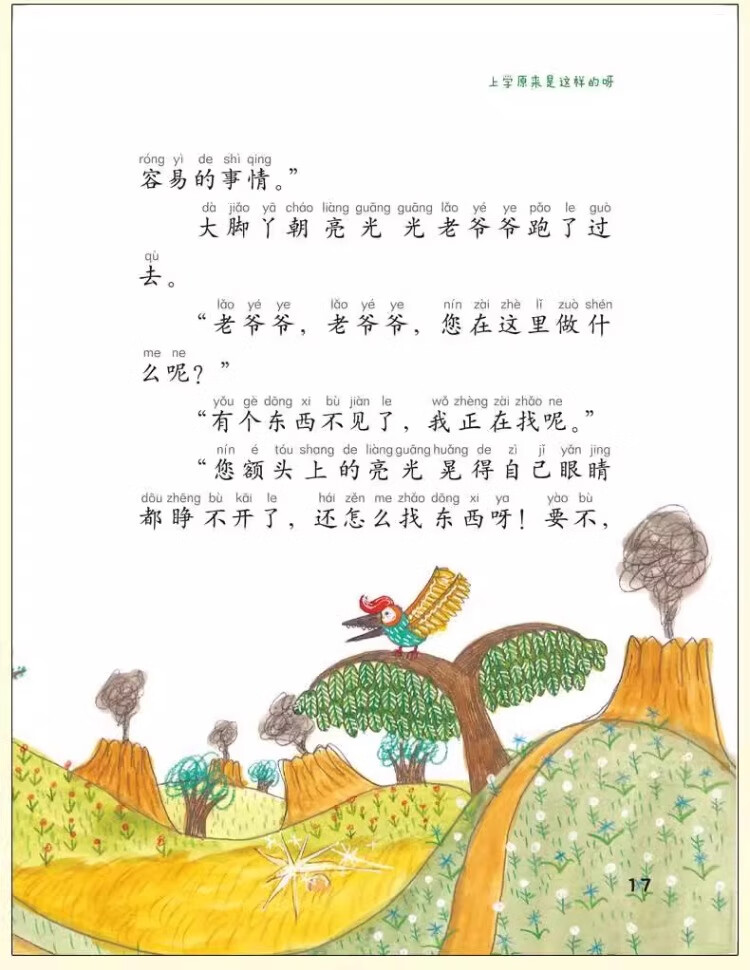 上学原来是这样的呀
róng yì de shì qing
容易的事情。”
dà jiǎo yā cháo liàng guāng guāng lǎo yé ye pǎo le guò
大脚丫朝亮光光老爷爷跑了过
qù
去。
lǎo yé ye lǎo yé ye nín zài zhè lǐ zuò shén
“老爷爷，老爷爷，您在这里做什
me ne
么呢？”
yǒu gè dōng xi bù jiàn le wǒ zhèng zài zhǎo ne
“有个东西不见了，我正在找呢。”
nín é tóu shang de liàng guāng huǎng de zì jǐ yǎn jing
“您额头上的亮光晃得自己眼睛
dōu zhēng bù kāi le hái zěn me zhǎo dōng xi ya yào bù
都睁不开了，还怎么找东西呀！要不，
17